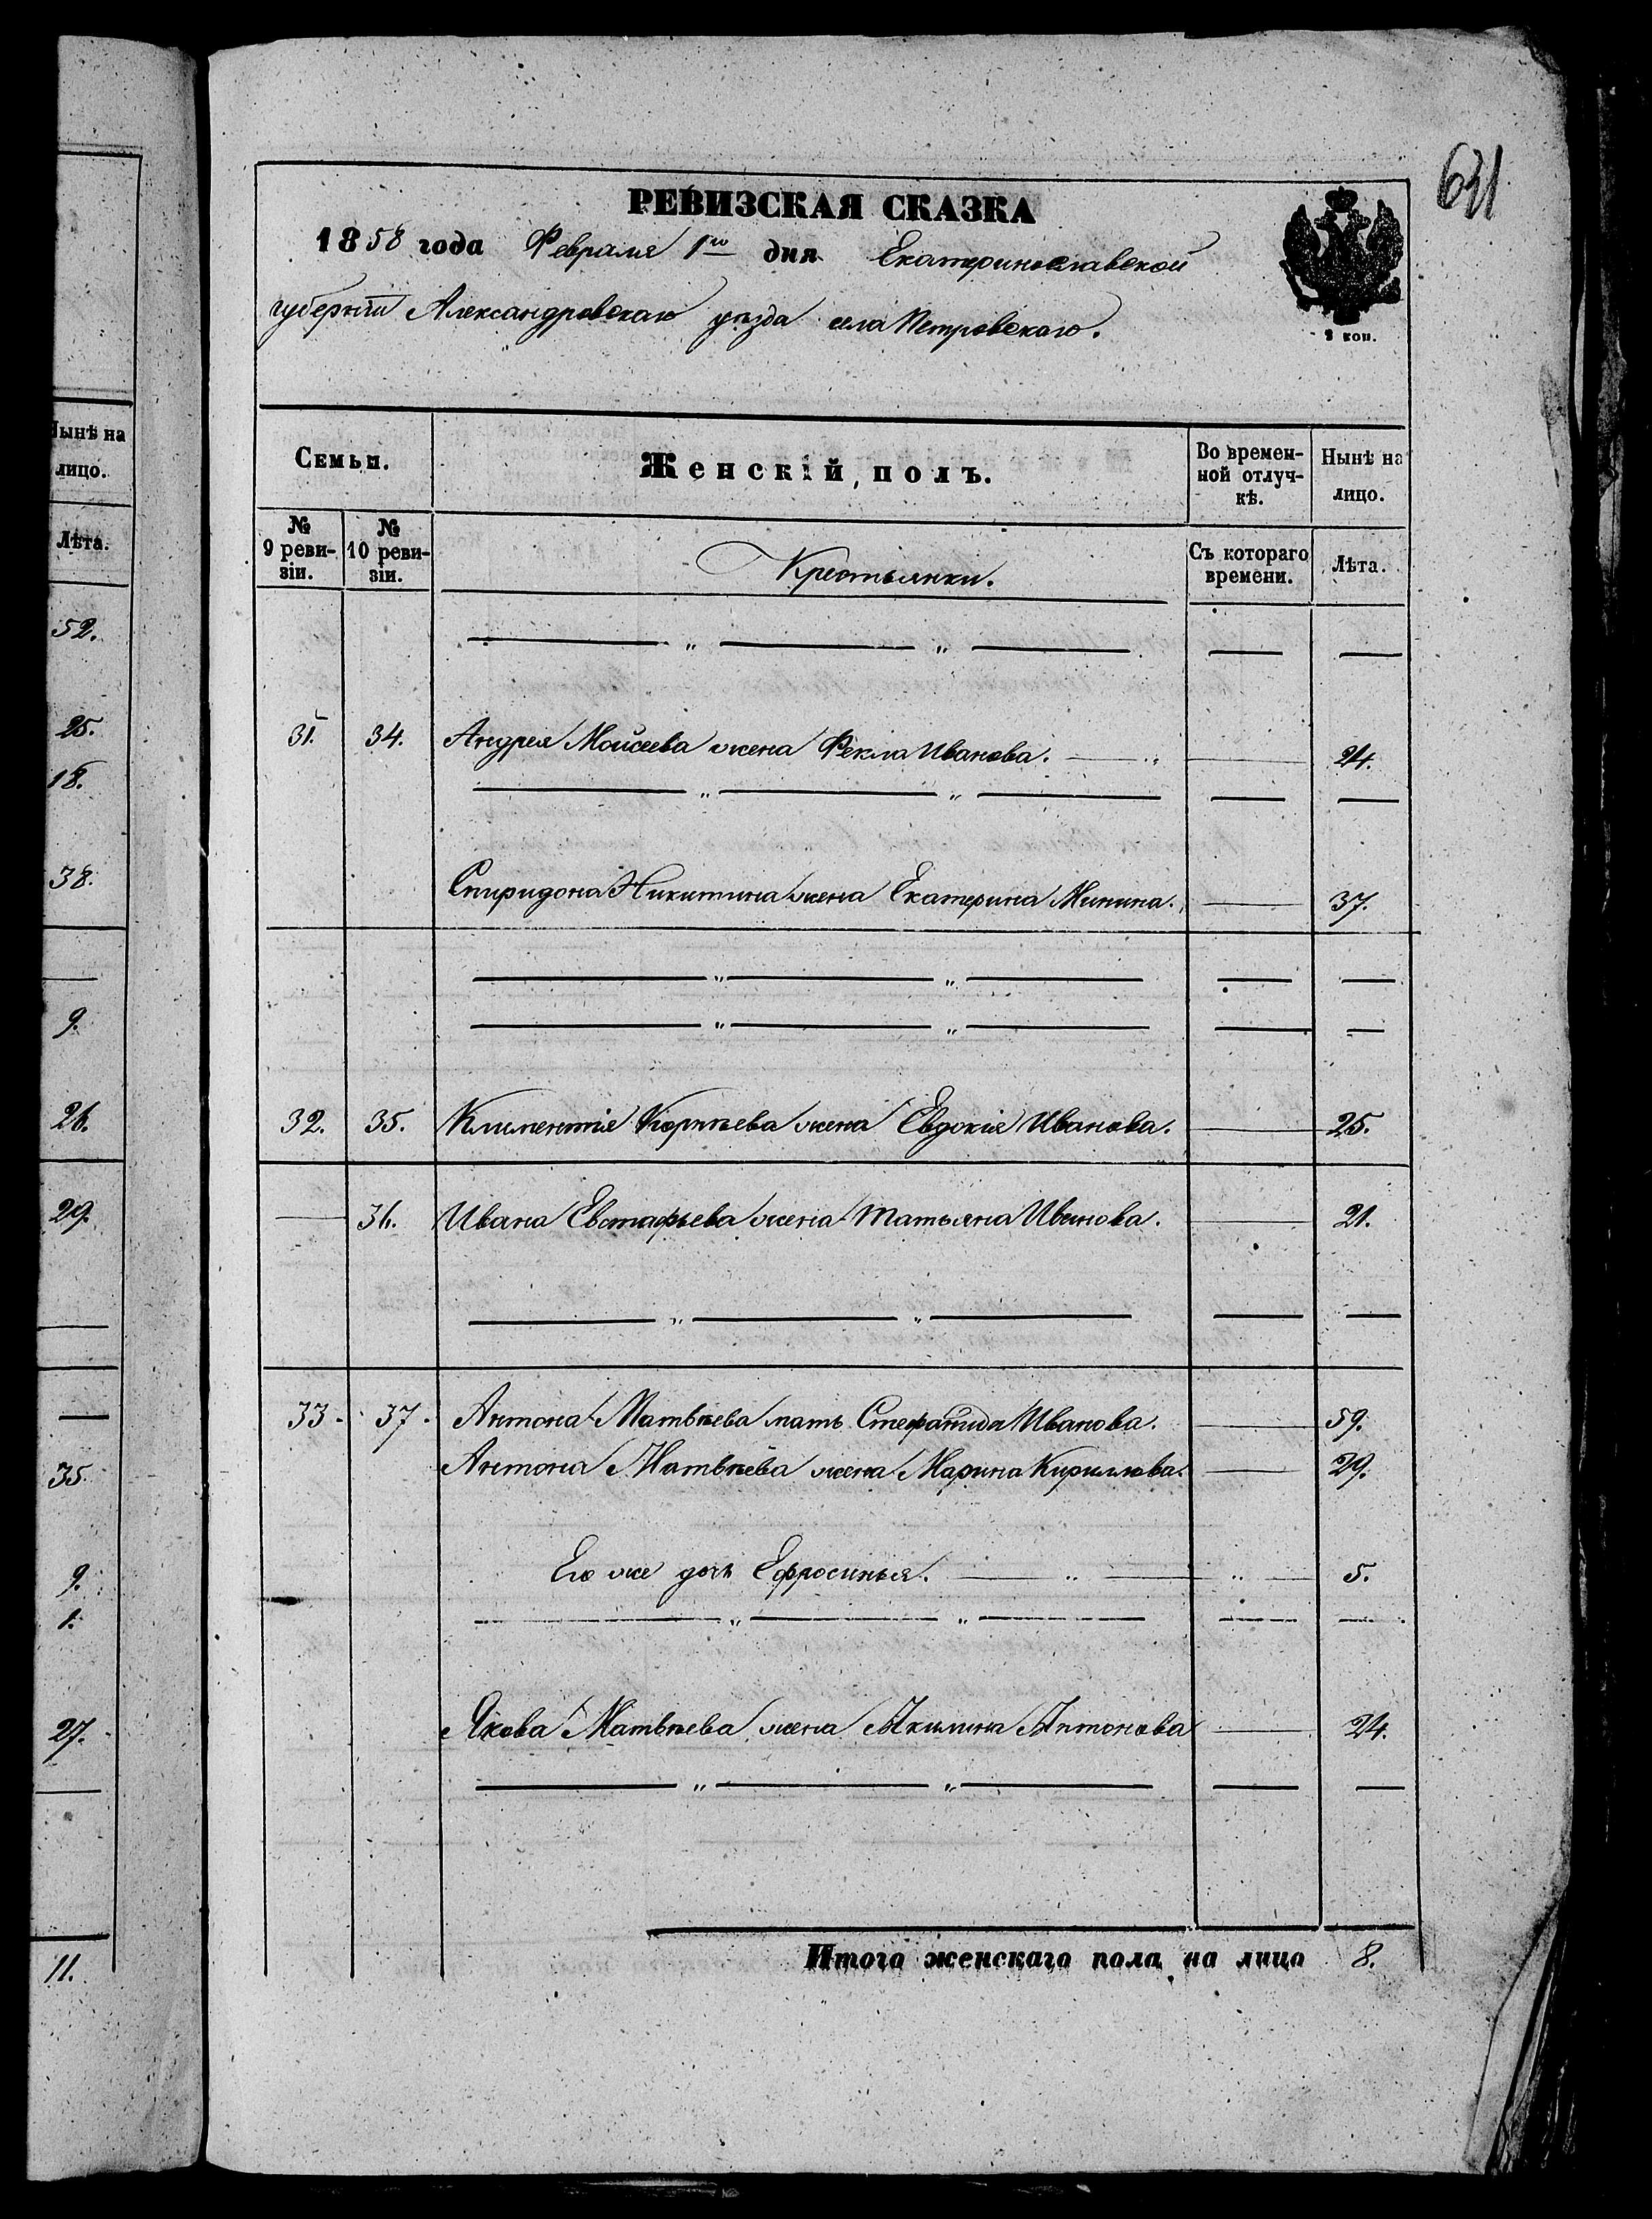 Нынѣ на
лицо.
Лѣта.
52.
25.
18.
38.
9.
26.
29.
35.
9.
1.
27.
11.
631
РЕВИЗСКАЯ СКАЗКА
1858 года Февраля 1го дня Екатеринославской
губерніи Александровскаго уѣзда села Петровскаго.
3 коп.
Семьи.
Женскій полъ.
Во времен-
ной отлуч-
кѣ.
Нынѣ на
лицо.
№
9 реви-
зіи.
№
10 реви-
зіи.
Крестьянки.
Съ котораго
времени.
Лѣта.
31. 34. Андрея Моисеева жена Фекла Иванова. 24.
Спиридона Никитина жена Екатерина Минина. 37.
32. 35. Климентія Корнѣева жена Евдокія Иванова. 25.
36. Ивана Евстафьева жена Татьяна Иванова. 21.
33. 37. Антона Матвѣева мать Стефанида Иванова. 59.
Антона Матвѣева жена Марина Кирилова. 29.
Его же дочь Ефросинья. 5.
Якова Матвѣева жена Акилина Антонова 24.
Итого женскаго пола на лицо 8.